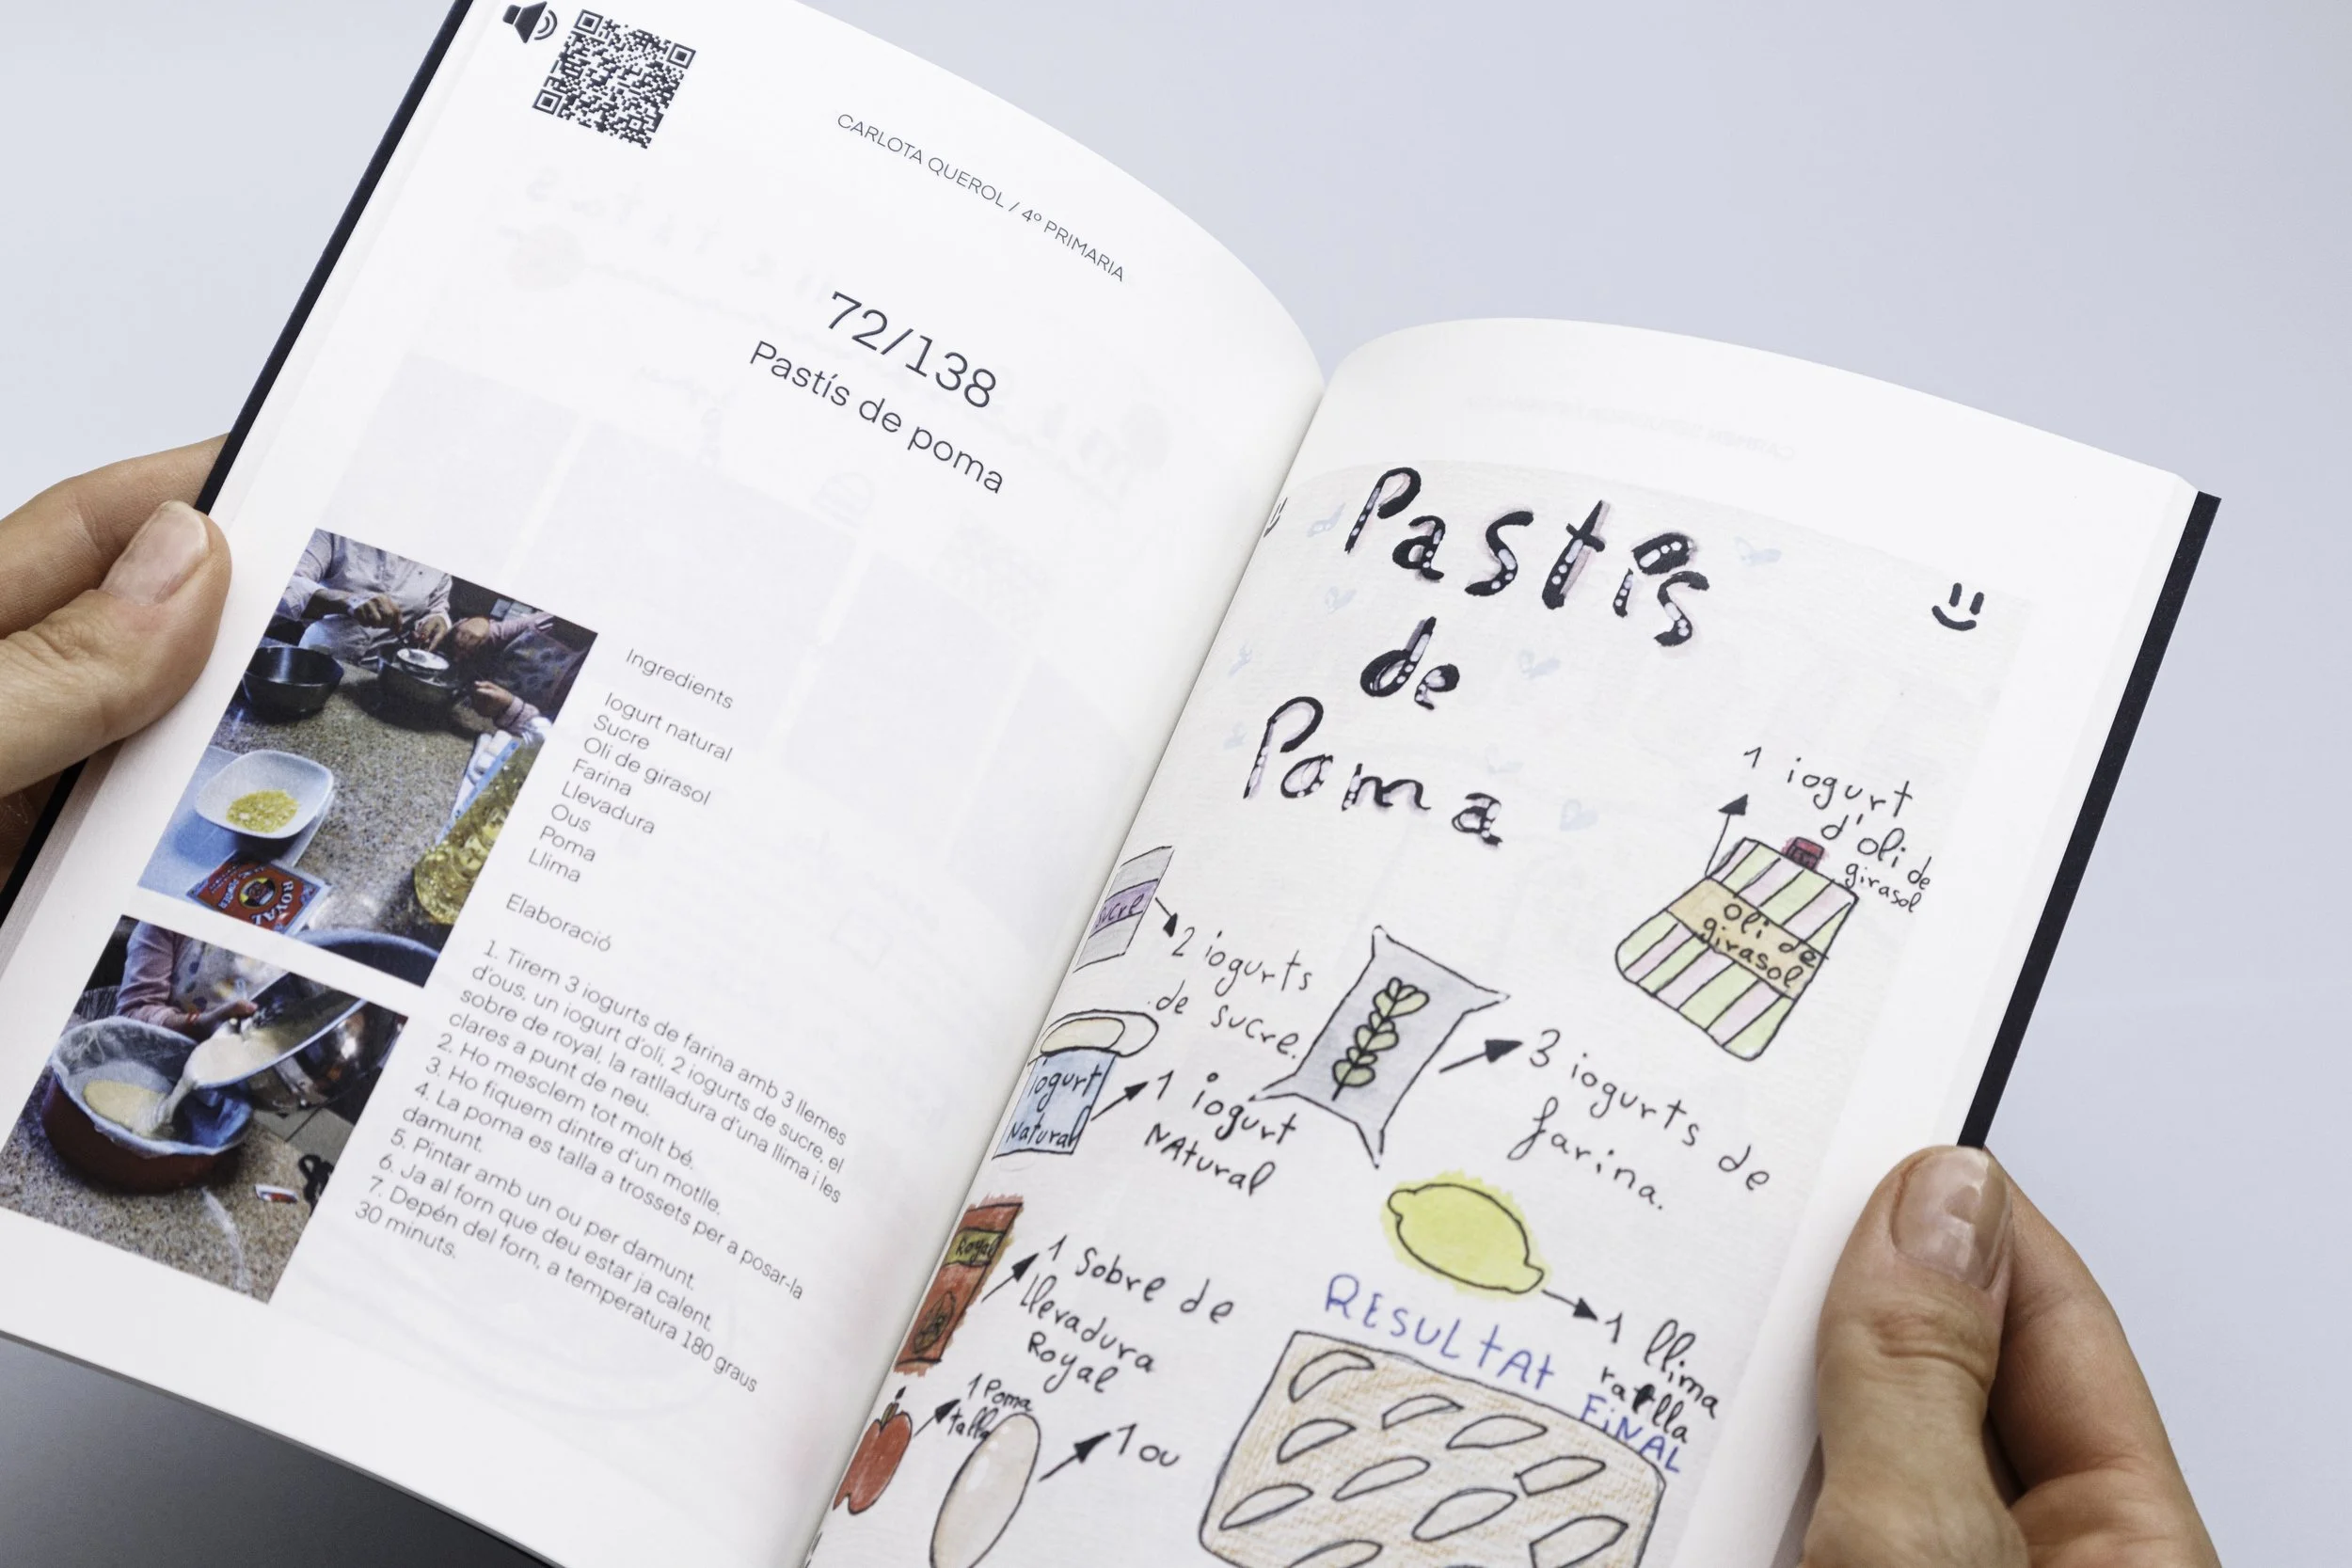 CARLOTA QUEROL / 4º PRIMARIA
72/138
Pastís de poma
Ingredients
Iogurt natural
Sucre
Oli de girasol
Farina
Llevadura
Ous
Poma
Llima
Elaboració
1. Tirem 3 iogurts de farina amb 3 llemes
d'ous, un iogurt d'oli, 2 iogurts de sucre, el
sobre de royal, la ratlladura d'una llima i les
clares a punt de neu.
2. Ho mesclem tot molt bé.
3. Ho fiquem dintre d'un motlle.
4. La poma es talla a trossets per a posar-la
damunt.
5. Pintar amb un ou per damunt.
6. Ja al forn que deu estar ja calent.
7. Depén del forn, a temperatura 180 graus
30 minuts.
ROYAL
Pastís
de
Poma
1 iogurt
d'oli de
girasol
oli de
girasol
sucre
2 iogurts
de sucre.
3 iogurts de
farina.
iogurt
Natural
1 iogurt
NAtural
Royal
1 Sobre de
llevadura
Royal
1 llima
ratlla
1 Poma
talla
1 ou
RESULtAt
FiNAL